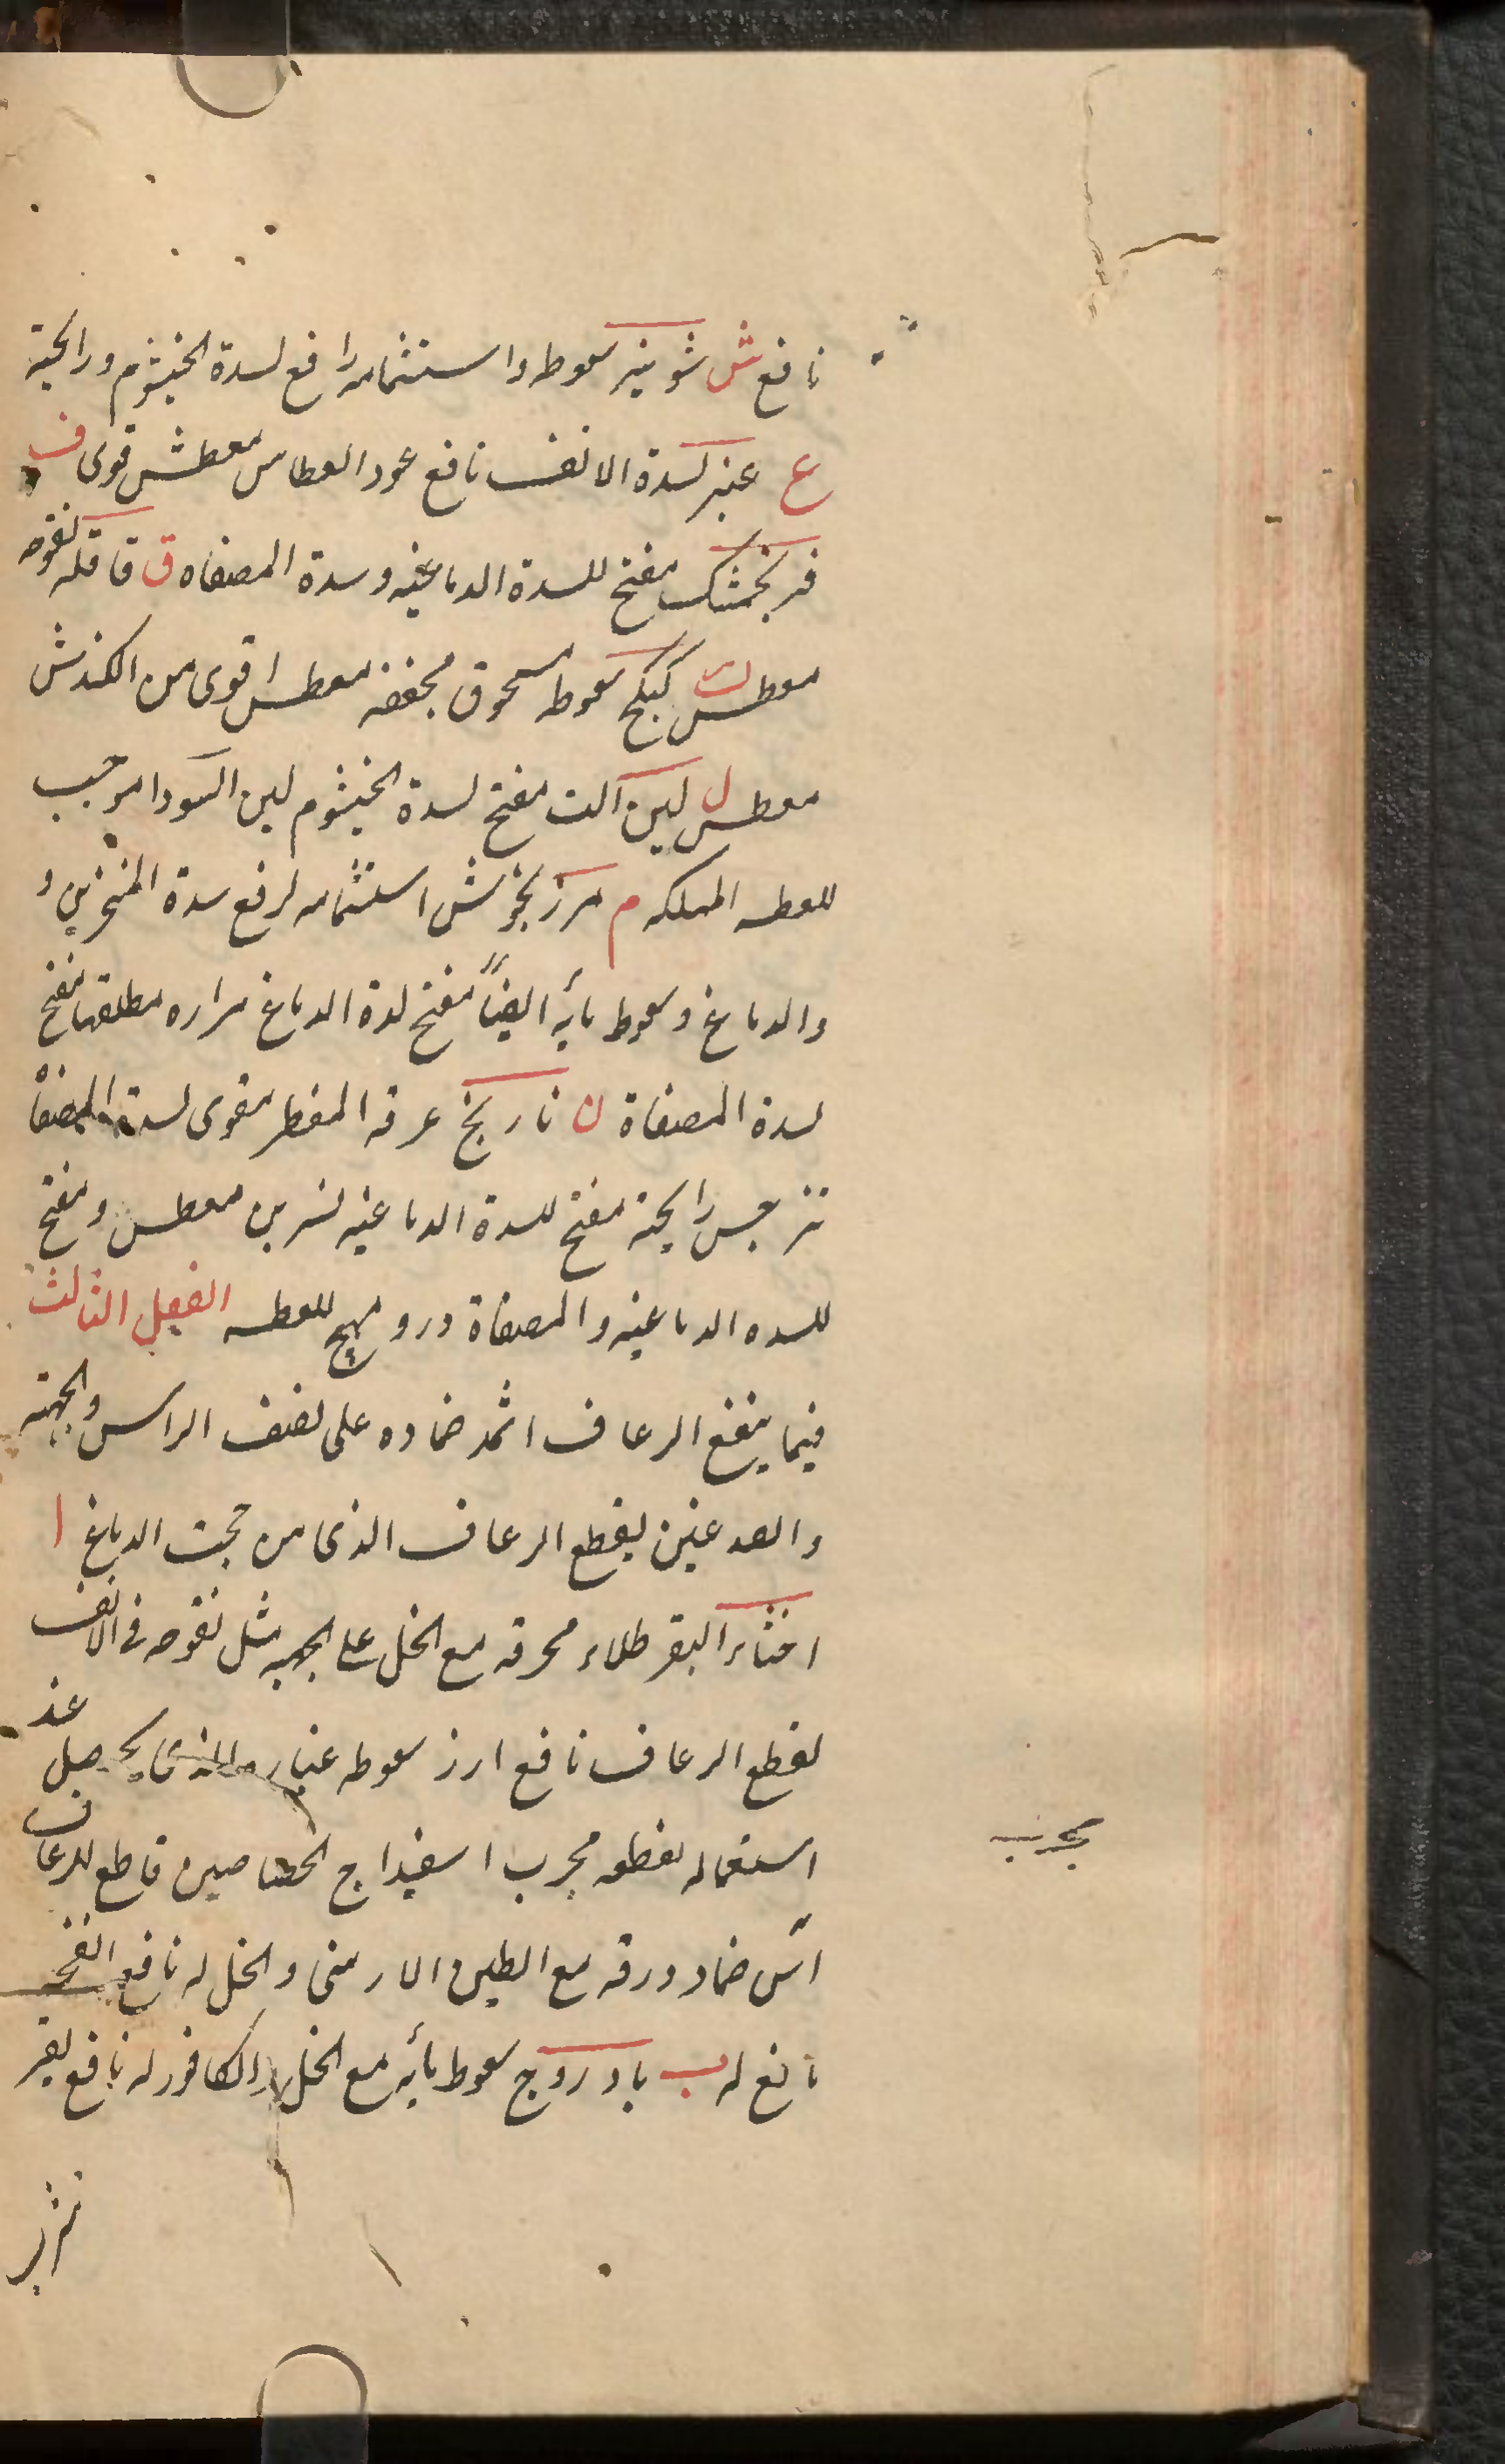 نافع ش شونيز سعوط واستشمامه رافع لسدة الخيشوم ورايحة
ع عنبر لسدة الانف نافع عود العطاس معطش قوى ف
فرنجمشك مفتح للسدة الدماغيه وسدة المصفاه ق قاقله نفوخه
معطس ك كبيكج سعوط مسحوق مجففه معطس اقوى من الكندش
معطس ل لبن الت مفتح لسدة الخيشوم لبن السودا موجب
للعطسه المهلكه م مرزنجوش استشمامه لرفع سدة المنخرين و
والدماغ وسعوط مأيه ايضاً مفتح لسدة الدماغ مراره مطلقها مفتح
لسدة المصفاة ن نارنج عرقه المقطر مقوى لسدة المصفاة
نرجس رايحته مفتح للسدة الدماغيه نسرين معطس ومفتح
للسده الدماغيه والمصفاة ورد مهيج للعطسه الفصل الثالث
فيما ينفع الرعاف اثمد ضماده على نصف الراس والجبهته
والصدغين يقطع الرعاف الذى من حجب الدماغ ا
اخثاء البقر طلاء محرقه مع الخل على الجبهه مثل نفوخه فى الانف
لقطع الرعاف نافع ارز سعوطه غباره الذى يحصل عند
استعماله لقطعه مجرب اسفيداج الحصاصين قاطع للرعاف
مجرب
آس ضماد ورقه مع الطين الارمنى والخل له نافع انفحه
نافع له ب بادروج سعوط مأيه مع الخل والكافور له نافع لقر